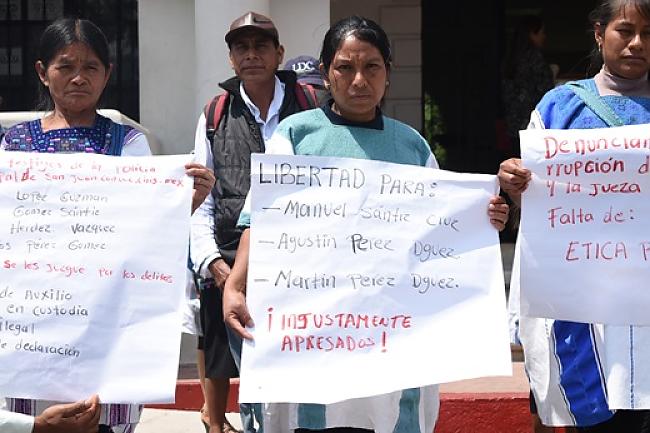 testigos de la Policía
pal de San Juan Cancuc
López Guzmán
Gomez Sántiz
Vazquez
Pérez Gomez
Se les juzgue por los delitos
de Auxilio
en custodia
ilegal
de declaración
UDC
LIBERTAD PARA:
- Manuel Sántiz Cruz
- Agustin Perez Dguez.
- Martín Perez Dguez.
¡INJUSTAMENTE
APRESADOS!
Denuncian
rrupción d
y la jueza
Falta de:
ETICA P